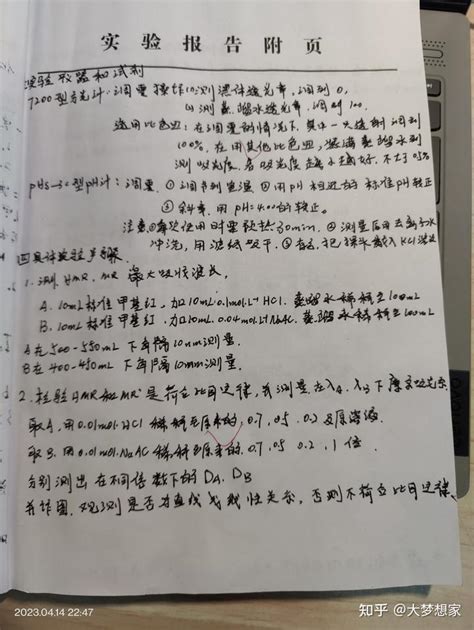 实验报告附页
实验仪器和试剂
7200型分光计：调零操作：①测黑体透光率，调到0，
②测蒸馏水透光率，调到100.
选用比色皿：在调零的情况下，其中一只透射调到
100%，在用其他比色皿，装满蒸馏水到
测吸光度，各吸光度越小越好，不大于0.5%
pHS-3C型pH计：调零，①调节到室温 ②用pH相近的标准pH较正
③斜率，用pH=4.00的较正。
注意①每次使用时要预热30min，②测量后用去离子水
冲洗，用滤纸吸干，③KCl
四具体实验步骤
1. 测HMR，MR⁻最大吸收波长，
A. 10mL标准甲基红，加10mL 0.1mol·L⁻¹ HCl. 蒸馏水稀释至100mL
B. 10mL标准甲基红，加10mL 0.04mol·L⁻¹ NaAC. 蒸馏水稀释至100mL
A在500-550mL下每隔10nm测量.
B在400-450mL下每隔10nm测量.
2. 检验HMR和MR⁻是符合比耳定律，并测量在λA、λB下摩尔吸光系
取A，用0.01mol HCl稀释至原来的，0.7，0.5 0.2及原溶液
取B，用0.01mol NaAC稀释至原来的0.7，0.5 0.2，1倍
分别测出在不同倍数下的DA，DB
并作图，观测是否为直线或线性关系，否则不符合比耳定律
2023.04.14 22:47
知乎 @大梦想家